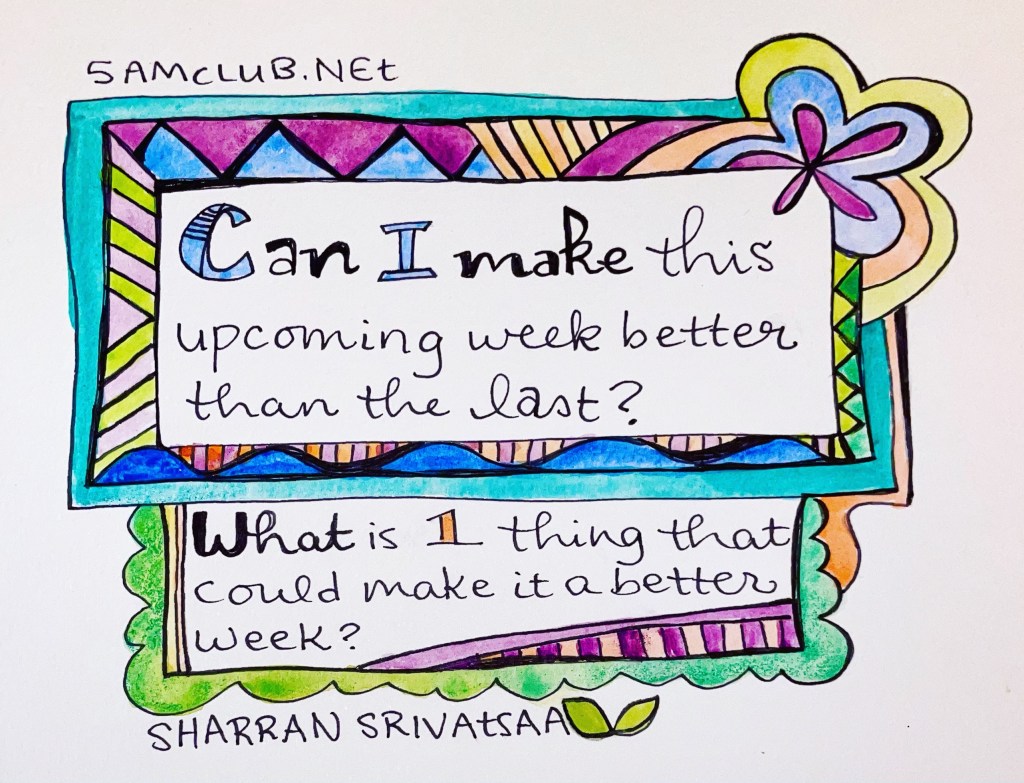 5AMCLUB.NEt
Can I make this
upcoming week better
than the last?
What is 1 thing that
could make it a better
week?
SHARRAN SRIVAtSAA